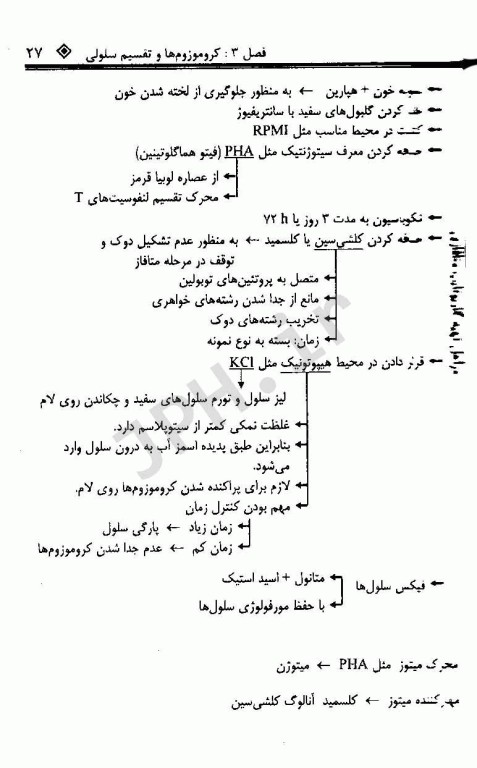 فصل ۳ : کروموزوم‌ها و تقسیم سلولی ۲۷
خون + هپارین ← به منظور جلوگیری از لخته شدن خون
کردن گلبول‌های سفید با سانتریفیوژ
کشت در محیط مناسب مثل RPMI
کردن معرف سیتوژنتیک مثل PHA (فیتو هماگلوتینین)
از عصاره لوبیا قرمز
محرک تقسیم لنفوسیت‌های T
نکوباسیون به مدت ۳ روز یا ۷۲ h
کردن کلشی‌سین یا کلسمید ← به منظور عدم تشکیل دوک و
توقف در مرحله متافاز
متصل به پروتئین‌های توبولین
مانع از جدا شدن رشته‌های خواهری
تخریب رشته‌های دوک
زمان: بسته به نوع نمونه
قرار دادن در محیط هیپوتونیک مثل KCl
لیز سلول و تورم سلول‌های سفید و چکاندن روی لام
غلظت نمکی کمتر از سیتوپلاسم دارد.
بنابراین طبق پدیده اسمز آب به درون سلول وارد
می‌شود.
لازم برای پراکنده شدن کروموزوم‌ها روی لام.
مهم بودن کنترل زمان
زمان زیاد ← پارگی سلول
زمان کم ← عدم جدا شدن کروموزوم‌ها
فیکس سلول‌ها
متانول + اسید استیک
با حفظ مورفولوژی سلول‌ها
محرک میتوز مثل PHA ← میتوژن
مهارکننده میتوز ← کلسمید آنالوگ کلشی‌سین
JPH.ir